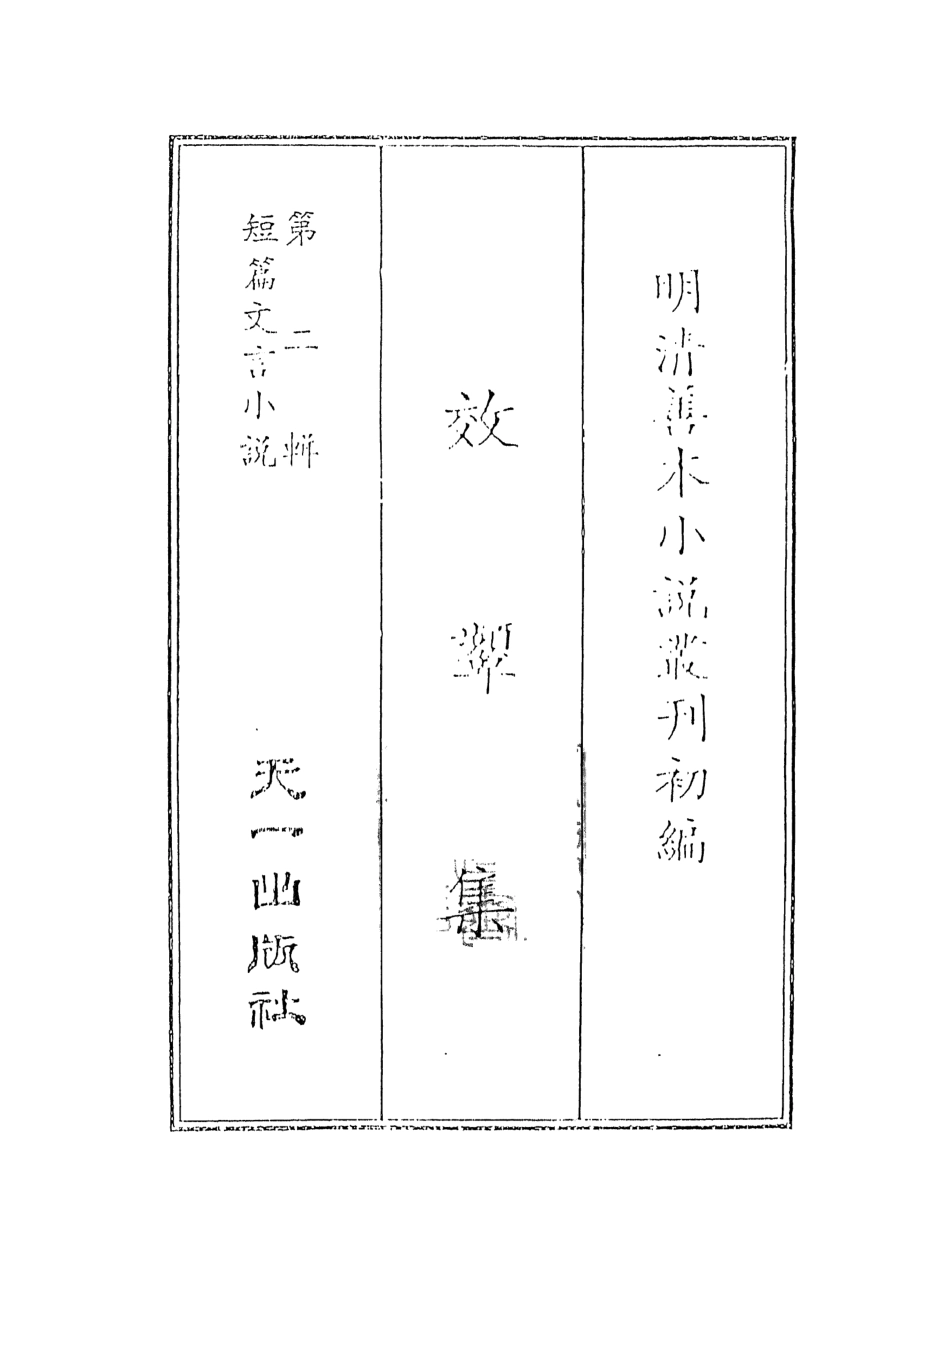 明清善本小說叢刊初編
效顰集
第二輯
短篇文言小說
天一出版社